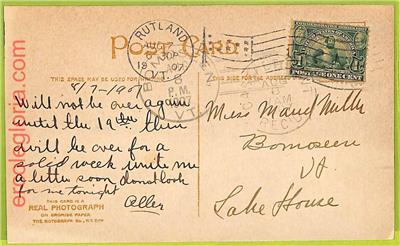 POST CARD
RUTLAND
VT.
1907
THIS SPACE MAY BE USED FOR
THIS SIDE FOR THE ADDRESS
8/7-1907
Will not be over again
until the 19th then
will be over for a
solid week write me
a letter soon dont look
for me tonight
Aller
Miss Maud Mills
Bomoseen
Vt
Lake House
POSTAGE ONE CENT
1 1
REC'D
THIS CARD IS A
REAL PHOTOGRAPH
ON BROMIDE PAPER.
THE ROTOGRAPH Co., N.Y. CITY
ercolegloria.com